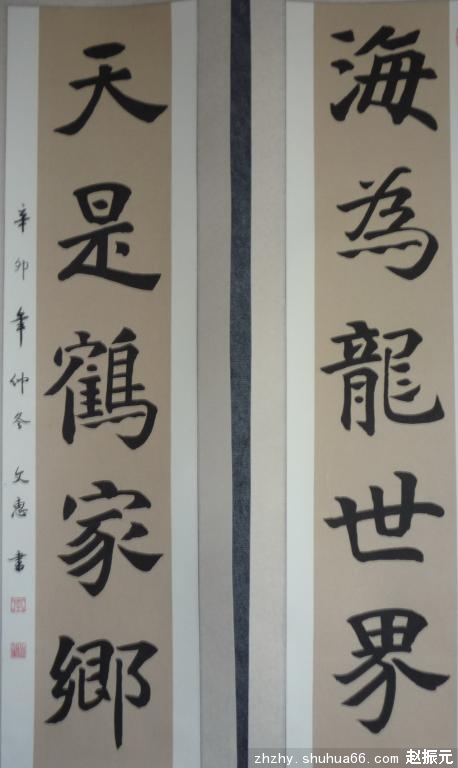 海為龍世界
天是鶴家鄉
辛卯年仲冬文惠書
zhzhy.shuhua66.com 赵振元